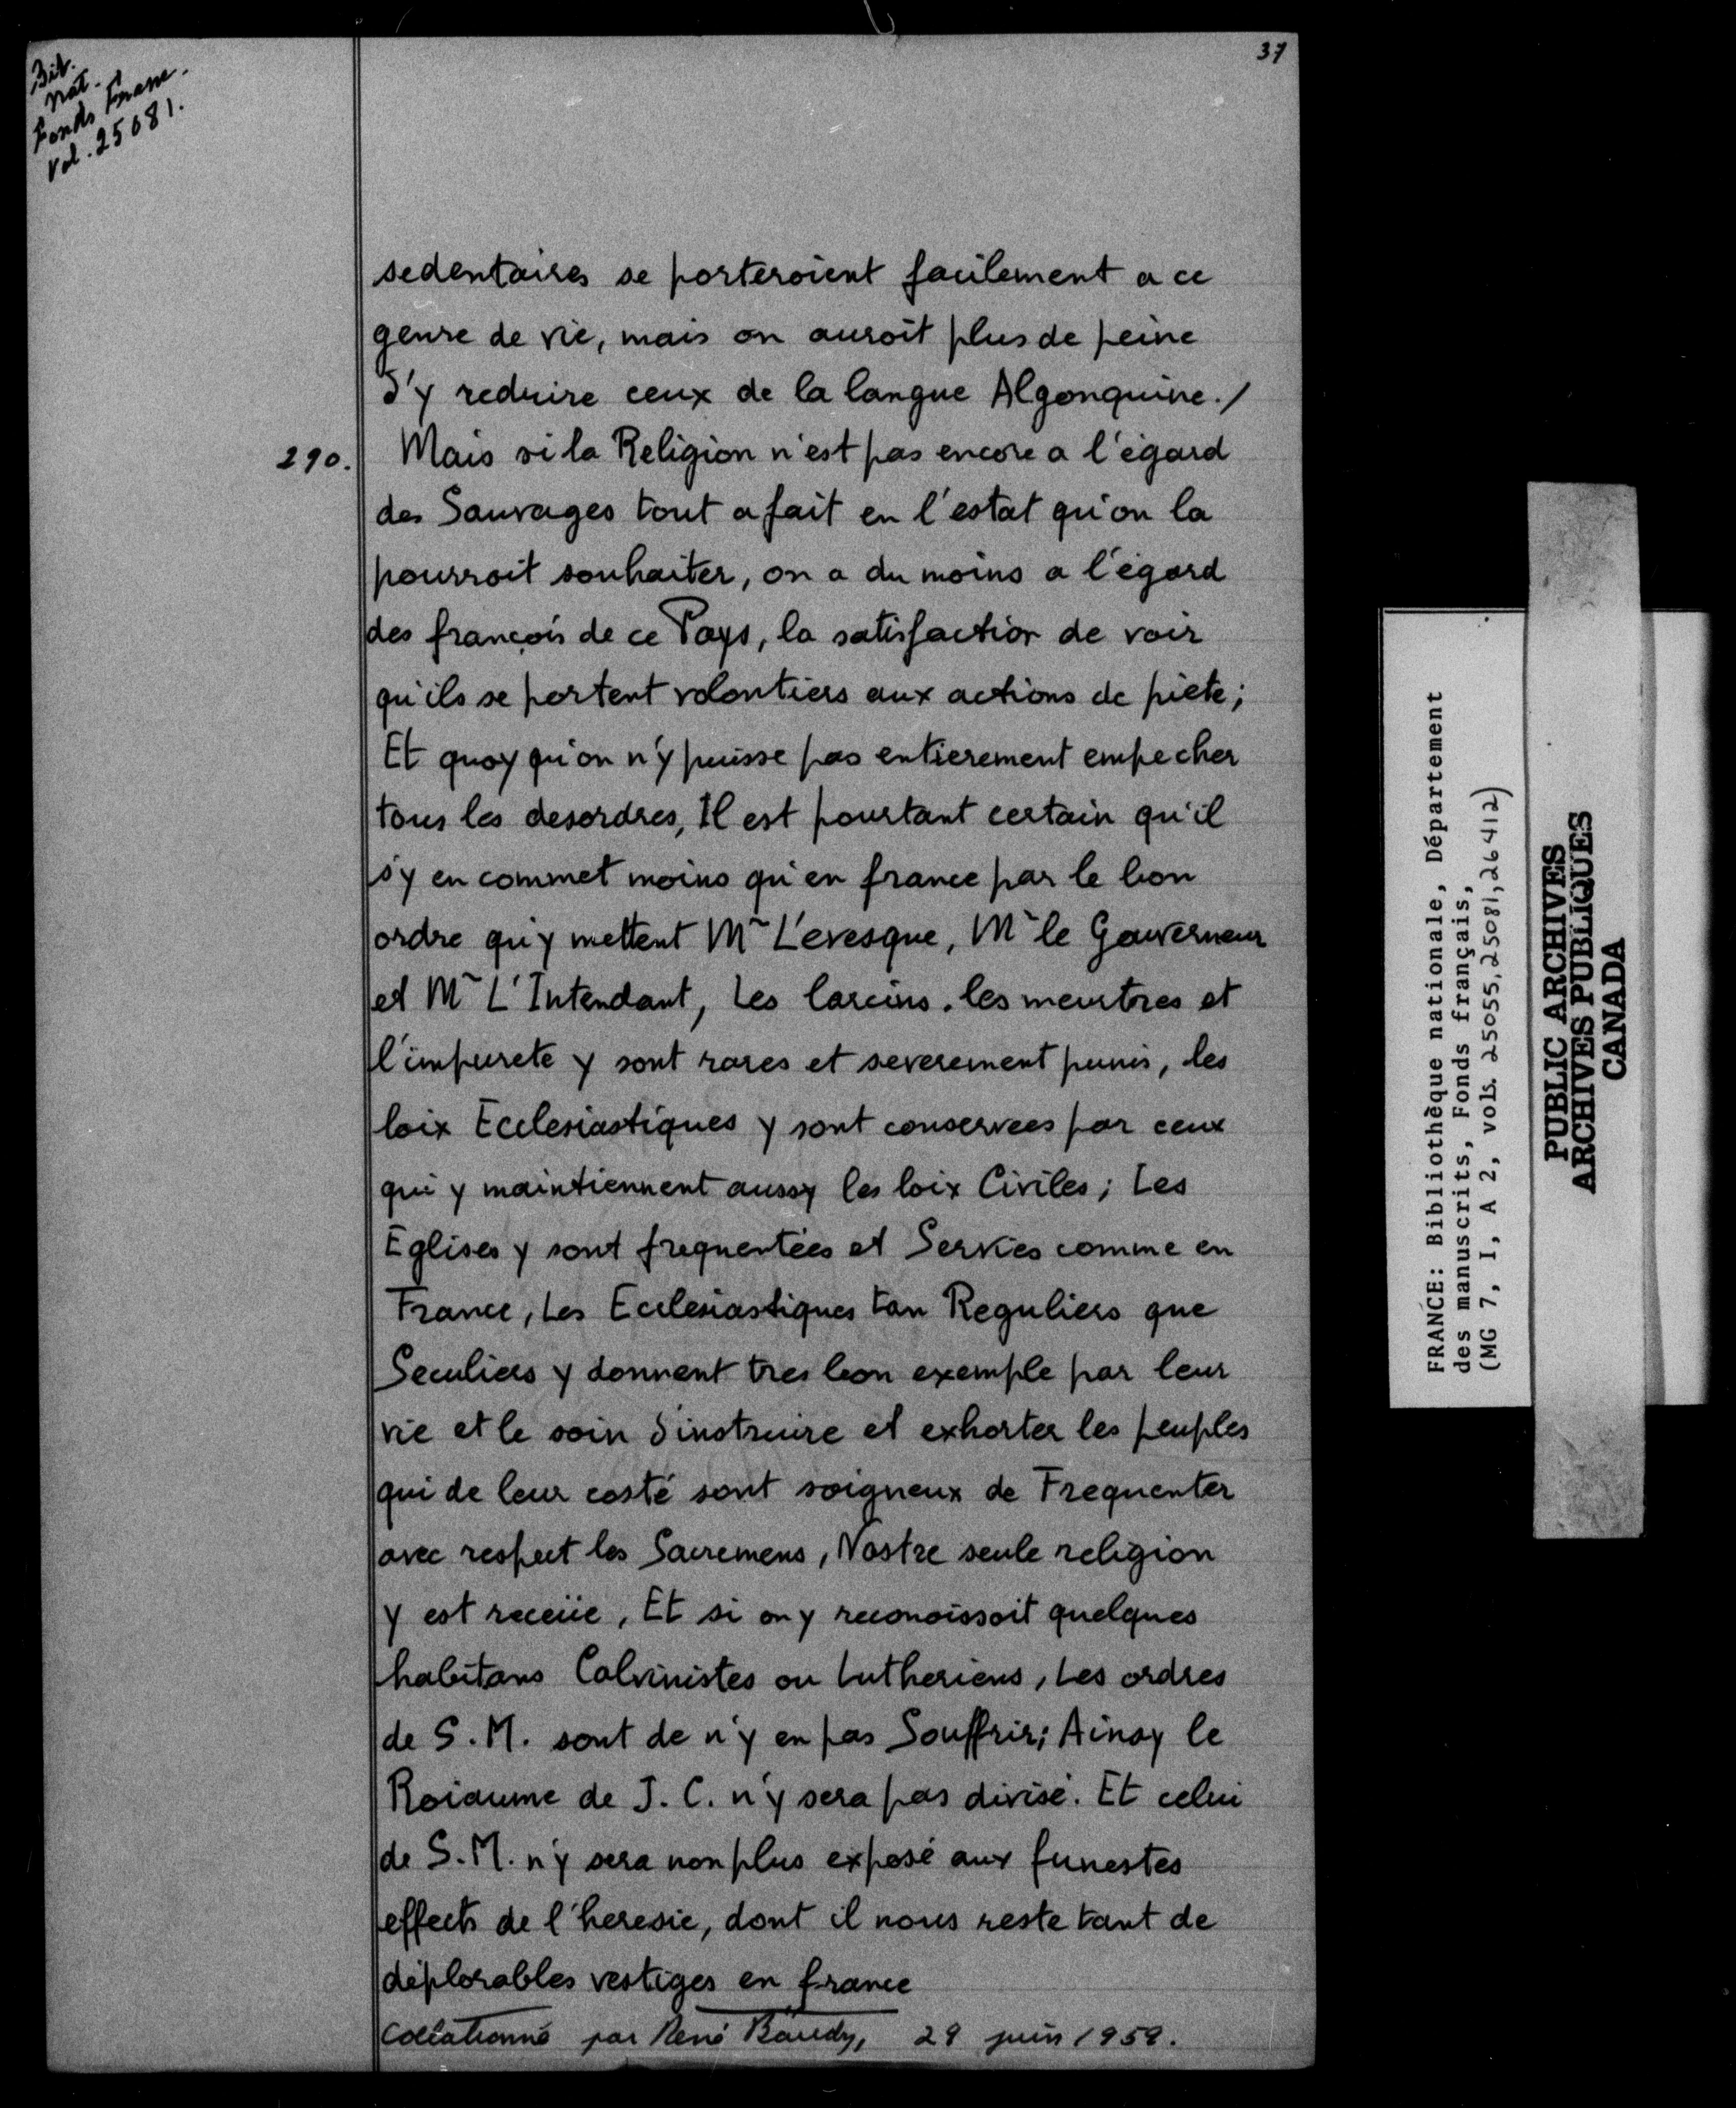 37
Bib.
nat.
Fonds Franc.
Vol. 25081.
sedentaires se porteroient facilement a ce
genre de vie, mais on auroit plus de peine
d'y reduire ceux de la langue Algonquine./
290.
Mais si la Religion n'est pas encore a l'égard
des Sauvages tout a fait en l'estat qu'on la
pourroit souhaiter, on a du moins a l'égard
des françois de ce Pays, la satisfaction de voir
qu'ils se portent volontiers aux actions de piete;
Et quoy qu'on n'y puisse pas entierement empecher
tous les desordres, Il est pourtant certain qu'il
s'y en commet moins qu'en france par le bon
ordre qu'y mettent Mr L'evesque, Mr le Gouverneur
et Mr L'Intendant, Les larcins. les meurtres et
l'impurete y sont rares et severement punis, les
loix Ecclesiastiques y sont conservees par ceux
qui y maintiennent aussy les loix Civiles; Les
Eglises y sont frequentées et Servies comme en
France, Les Ecclesiastiques tan Reguliers que
Seculiers y donnent tres bon exemple par leur
vie et le soin d'instruire et exhorter les peuples
qui de leur costé sont soigneux de Frequenter
avec respect les Sacremens, Nostre seule religion
y est receüe, Et si on y reconoissoit quelques
habitans Calvinistes ou Lutheriens, Les ordres
de S.M. sont de n'y en pas Souffrir; Ainsy le
Roiaume de J.C. n'y sera pas divisé. Et celui
de S.M. n'y sera non plus exposé aux funestes
effects de l'heresie, dont il nous reste tant de
déplorables vestiges en france
Collationné par René Baudry, 29 juin 1959.
FRANCE: Bibliothèque nationale, Département
des manuscrits, Fonds français,
(MG 7, I, A 2, vols. 25055, 25081, 26412)
PUBLIC ARCHIVES
ARCHIVES PUBLIQUES
CANADA